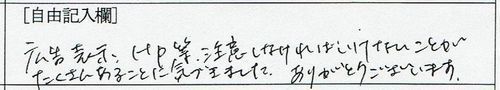 [自由記入欄]
広告表示、HP等、注意しなければいけないことが
たくさんあることに気づきました。ありがとうございます。